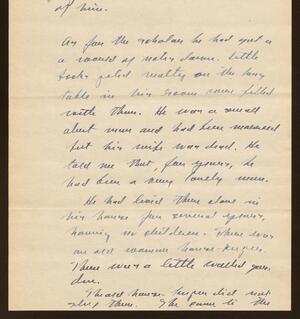 of him.
As for the scholar he had got a
a world of notes down. Little
books piled neatly on the long
table in his room were filled
with them. He was a small
alert man and had been married
but his wife was dead. He
told me that, for years, he
had been a very lonely man.
He had lived there alone in
his house for several years,
having no children. There was
an old woman house-keeper.
There was a little walled gar-
den.
The old house-keeper did not
sleep there. She came in the